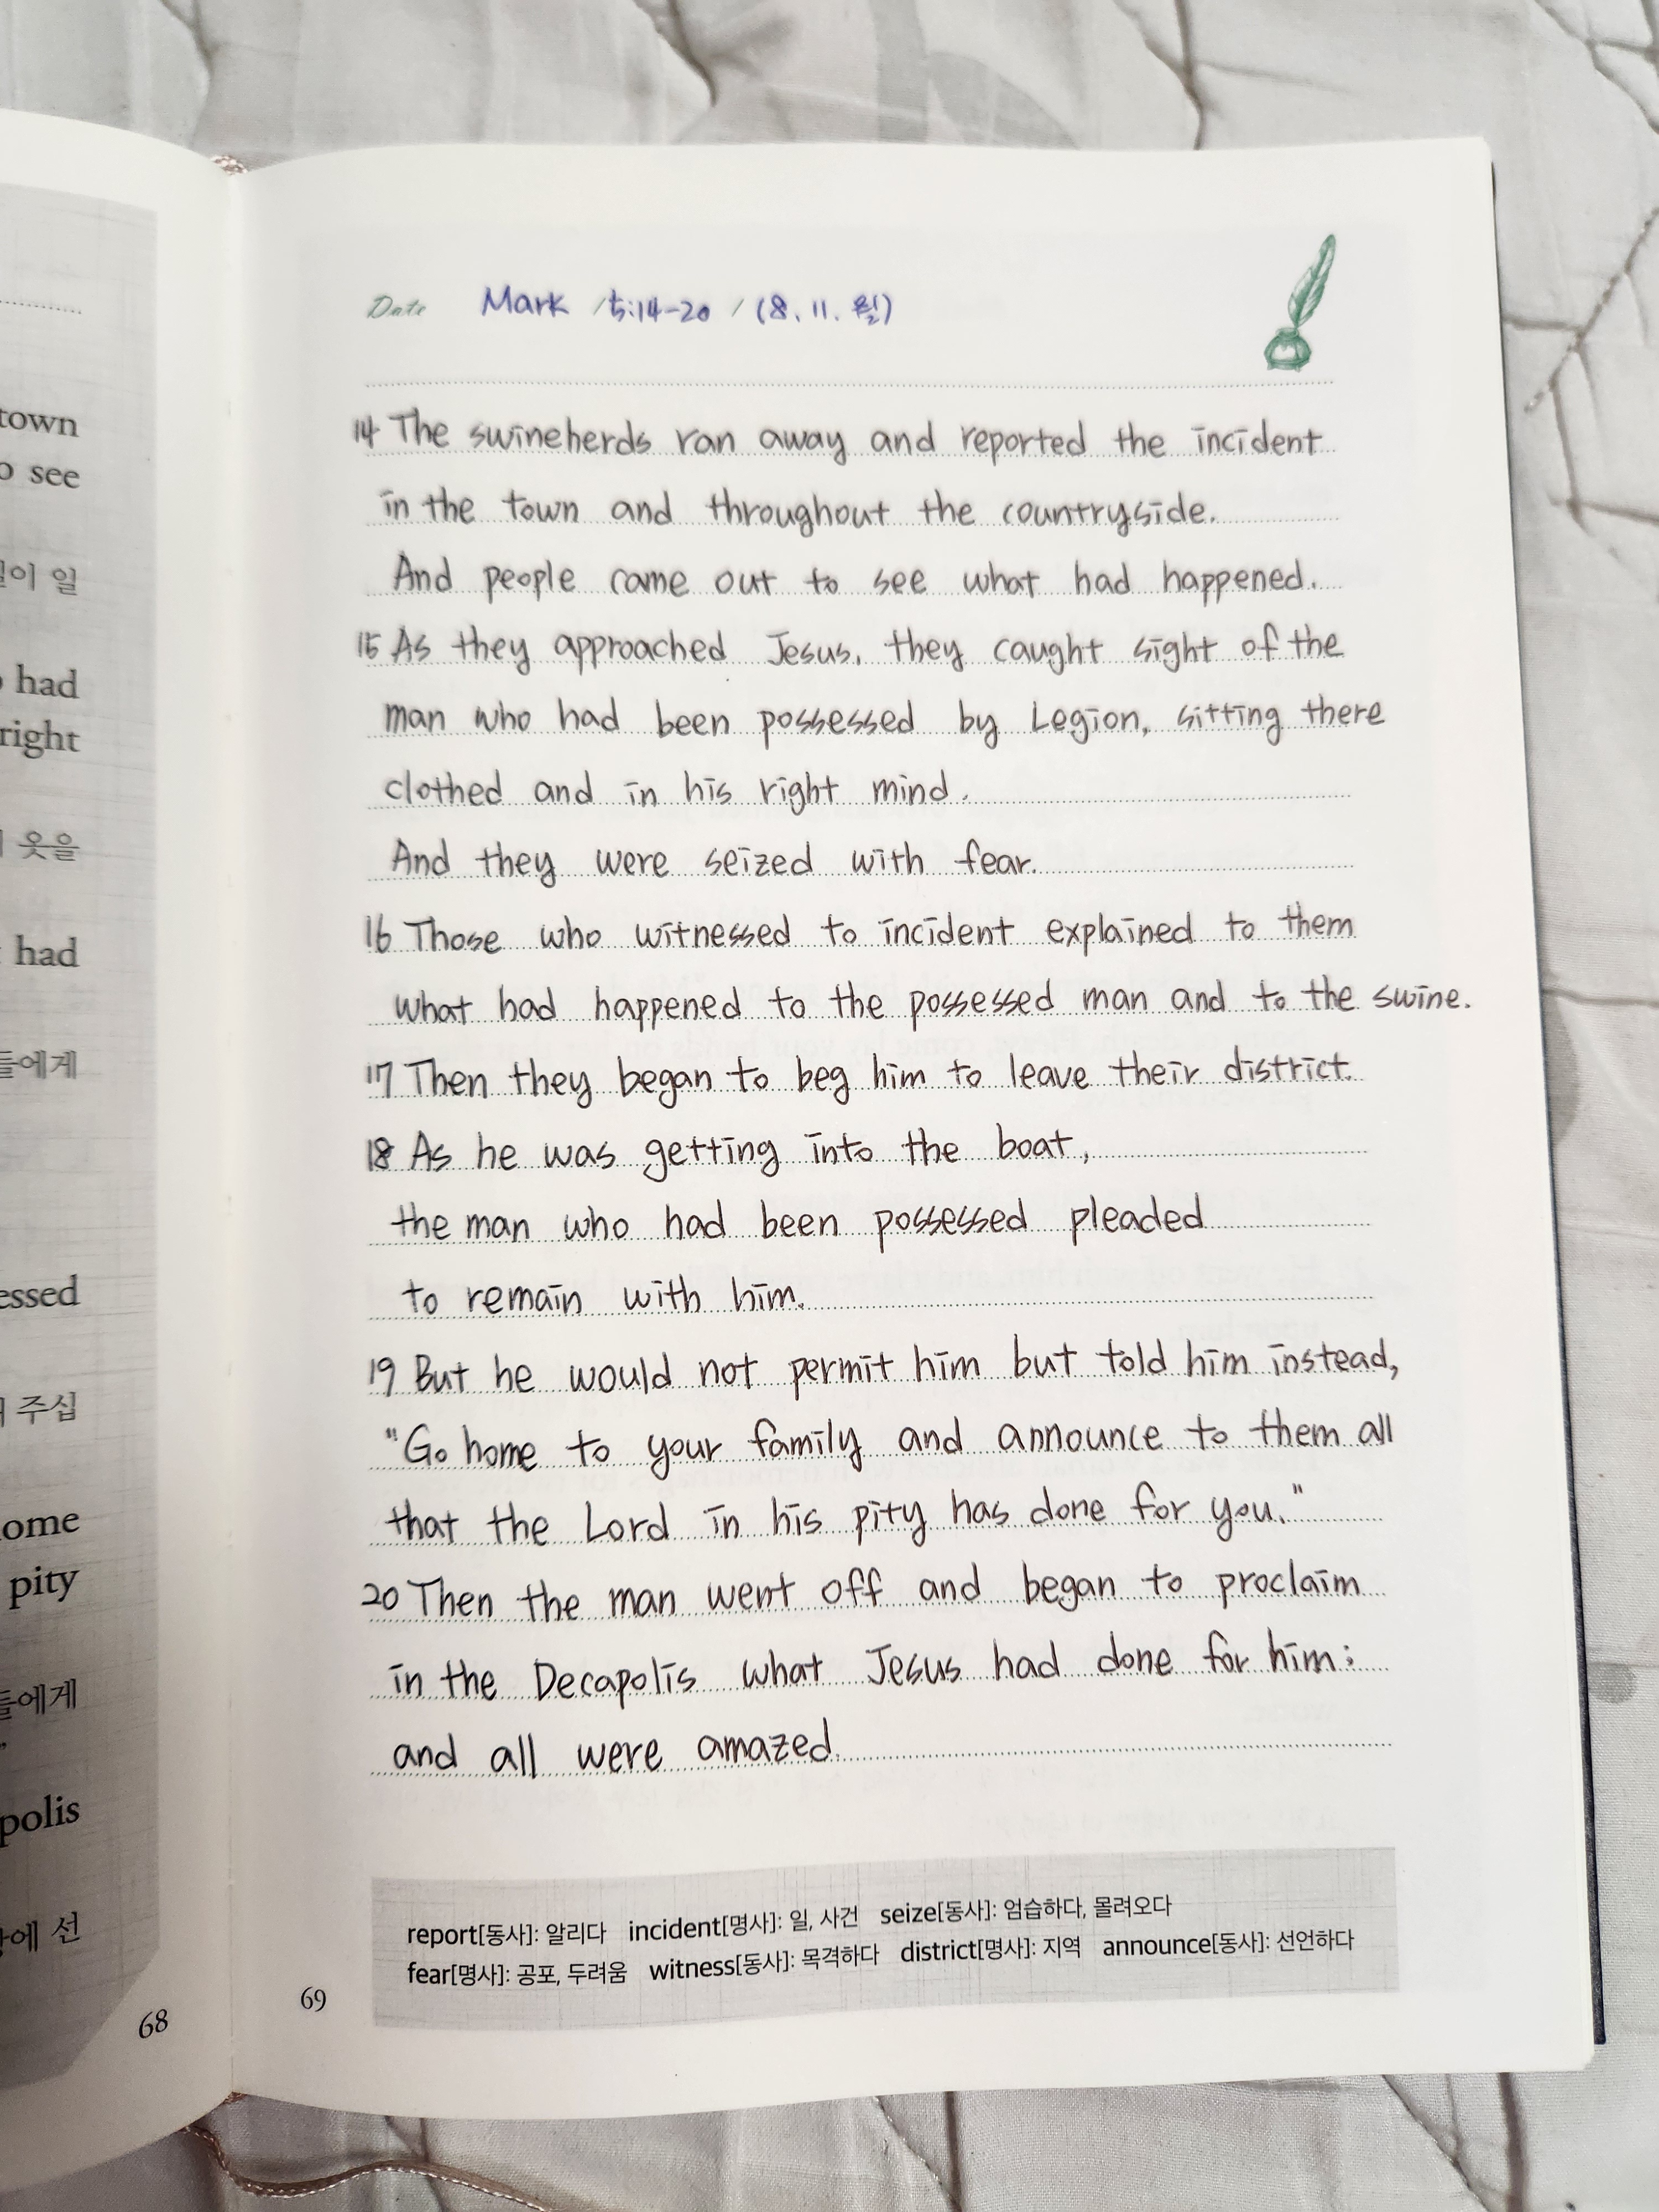 town
see
일
had
right
옷을
had
들에게
주십
pity
들에게
선
68
Date Mark / 5:14-20 / (8. 11. 월)
14 The swineherds ran away and reported the incident
in the town and throughout the countryside.
And people came out to see what had happened.
15 As they approached Jesus, they caught sight of the
man who had been possessed by Legion, sitting there
clothed and in his right mind.
And they were seized with fear.
16 Those who witnessed to incident explained to them
what had happened to the possessed man and to the swine.
17 Then they began to beg him to leave their district.
18 As he was getting into the boat,
the man who had been possessed pleaded
to remain with him.
19 But he would not permit him but told him instead,
"Go home to your family and announce to them all
that the Lord in his pity has done for you."
20 Then the man went off and began to proclaim
in the Decapolis what Jesus had done for him;
and all were amazed.
report[동사]: 알리다 incident[명사]: 일, 사건 seize[동사]: 엄습하다, 몰려오다
fear[명사]: 공포, 두려움 witness[동사]: 목격하다 district[명사]: 지역 announce[동사]: 선언하다
69